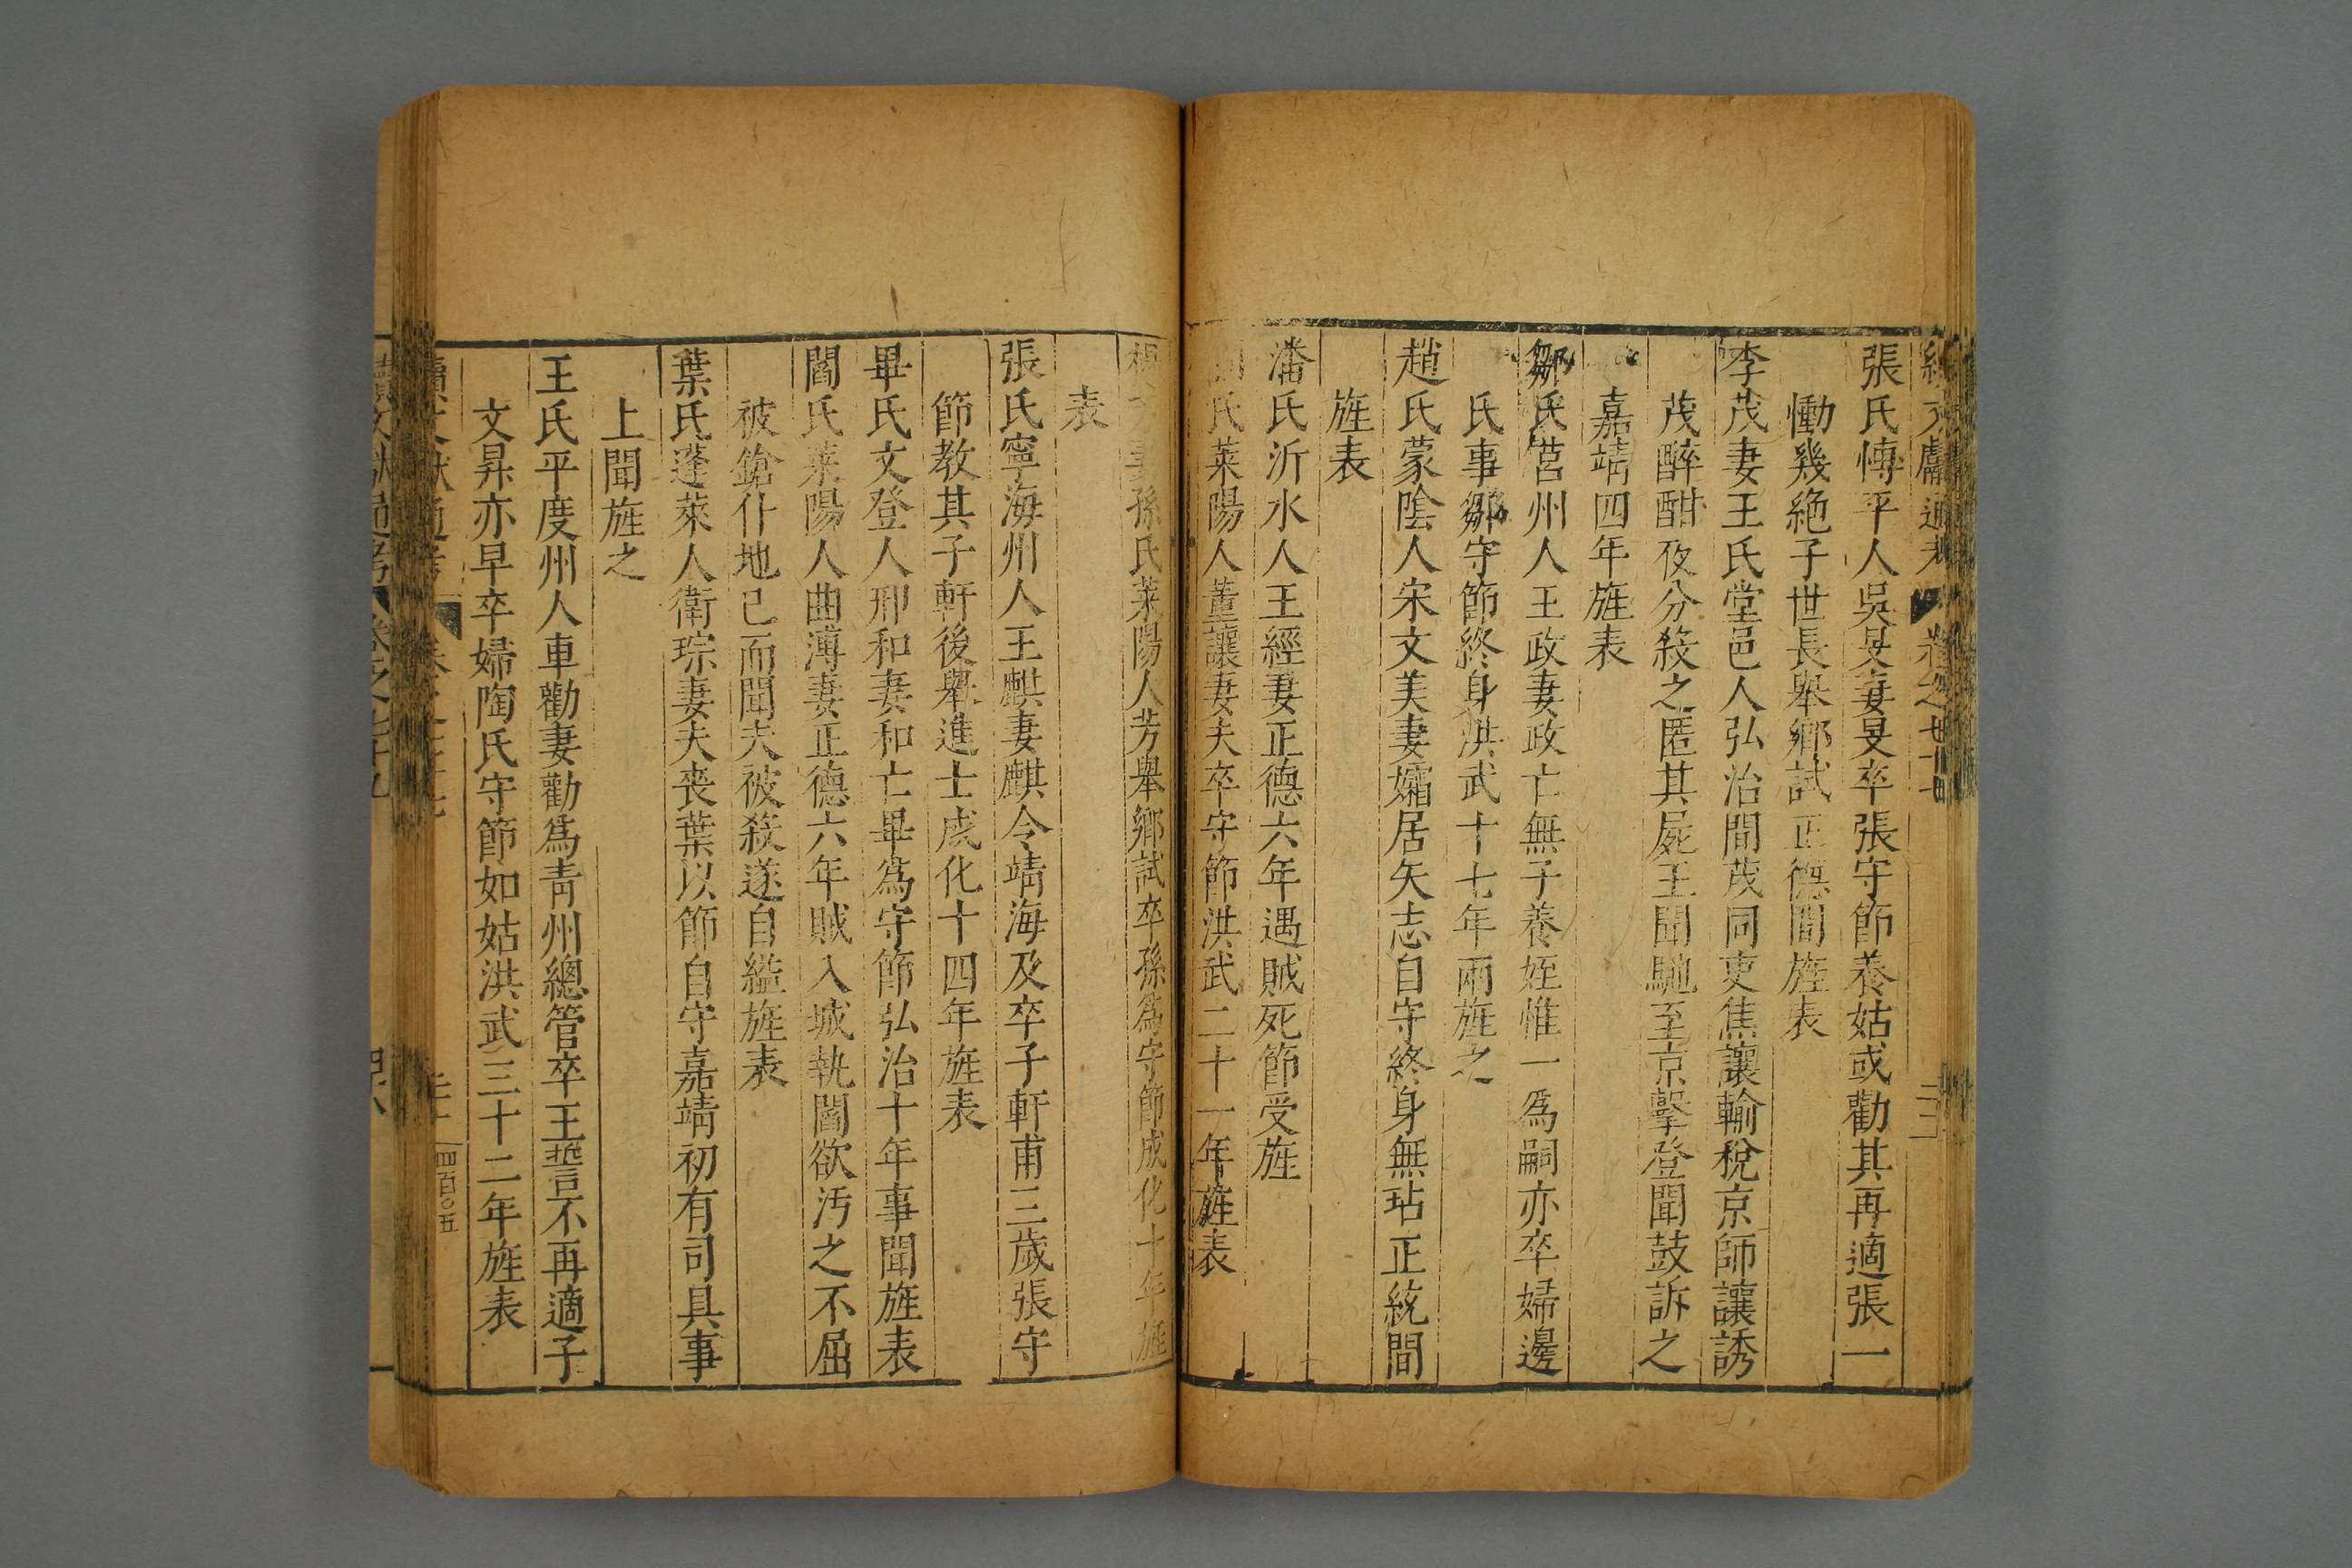 張氏博平人吳旻妻旻卒張守節養姑或勸其再適張一
慟幾絶子世長舉鄉試正德間旌表
李茂妻王氏堂邑人弘治間茂同吏焦讓輸稅京師讓誘
茂醉酣夜分殺之匿其屍王聞馳至京擊登聞鼓訴之
嘉靖四年旌表
鄒氏莒州人王政妻政亡無子養姪惟一爲嗣亦卒婦邊
氏事鄒守節終身洪武十七年兩旌之
趙氏蒙陰人宋文美妻孀居矢志自守終身無玷正統間
旌表
潘氏沂水人王經妻正德六年遇賊死節受旌
氏萊陽人董讓妻夫卒守節洪武二十一年旌表
妻孫氏萊陽人芳舉鄉試卒孫爲守節成化十年旌
表
張氏寧海州人王麒妻麒令靖海及卒子軒甫三歲張守
節教其子軒後舉進士成化十四年旌表
畢氏文登人邢和妻和亡畢爲守節弘治十年事聞旌表
閻氏萊陽人曲溥妻正德六年賊入城執閻欲汚之不屈
被鎗仆地已而聞夫被殺遂自縊旌表
葉氏蓬萊人衛琮妻夫喪葉以節自守嘉靖初有司具事
上聞旌之
王氏平度州人車勸妻勸爲青州總管卒王誓不再適子
文昇亦早卒婦陶氏守節如姑洪武三十二年旌表
四百〇五